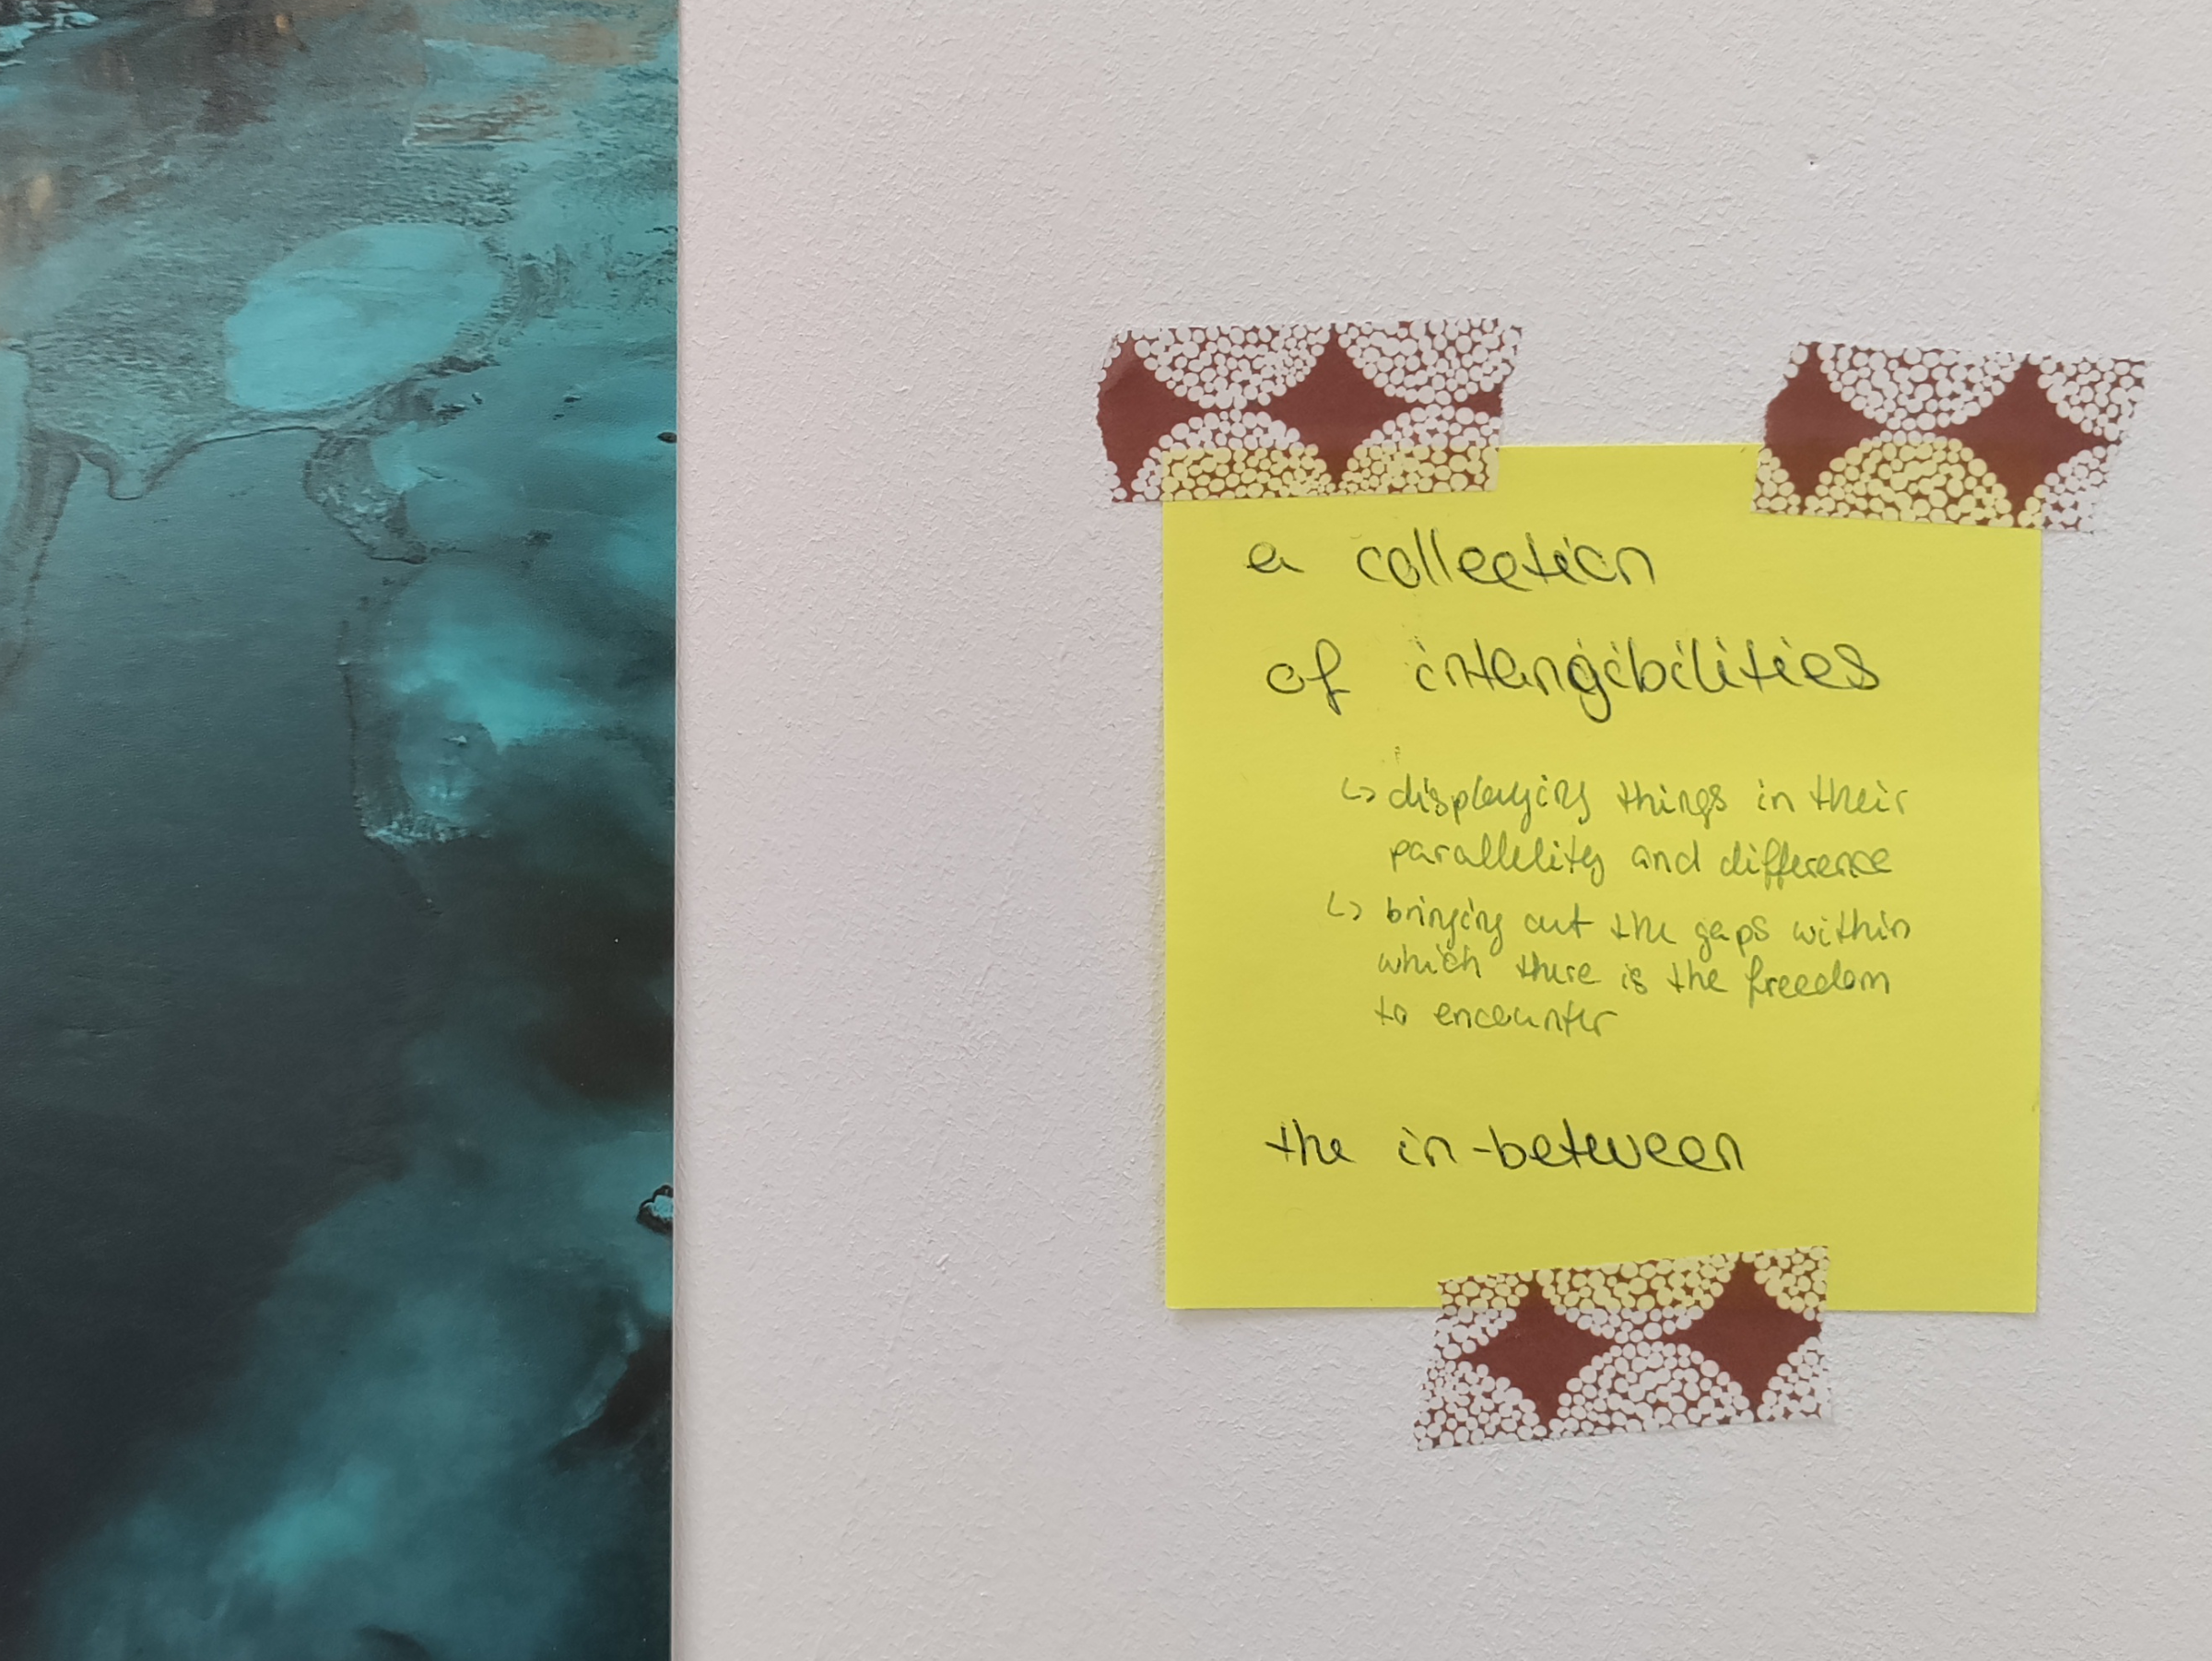 a collection
of intangibilities
↳ displaying things in their
parallelity and difference
↳ bringing out the gaps within
which there is the freedom
to encounter
the in-between